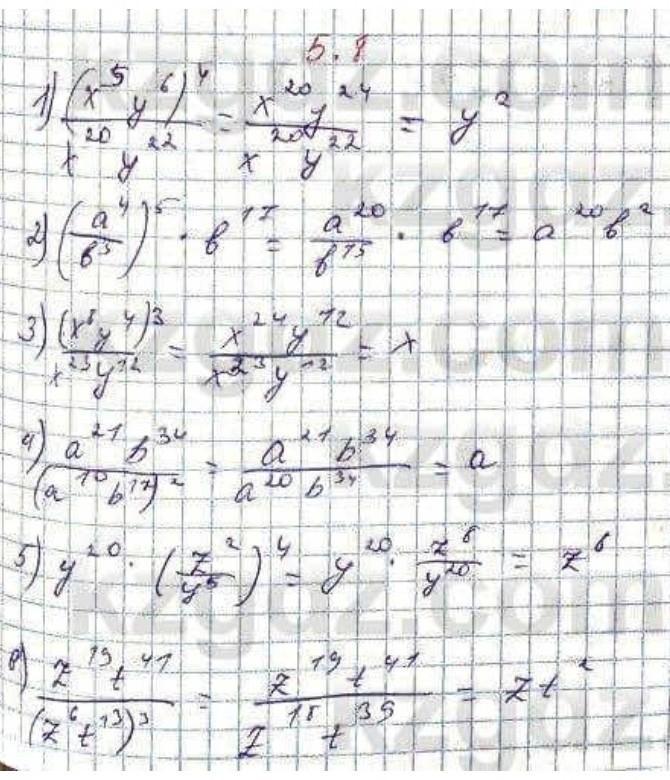 5.8
1) (x⁵y⁶)⁴/x²⁰y²² = x²⁰y²⁴/x²⁰y²² = y²
2) (a⁴/b³)⁵ · b¹⁷ = a²⁰/b¹⁵ · b¹⁷ = a²⁰b²
3) (x⁸y⁴)³/x²³y¹² = x²⁴y¹²/x²³y¹² = x
4) a²¹b³⁴/(a¹⁰b¹⁷)² = a²¹b³⁴/a²⁰b³⁴ = a
5) y²⁰ · (z²/y⁵)⁴ = y²⁰ · z⁸/y²⁰ = z⁶
6) z¹⁹t⁴¹/(z⁶t¹³)³ = z¹⁹t⁴¹/z¹⁸t³⁹ = zt²
kzgdz.com
kzgdz.com
kzgdz.com
kzgdz.com
kzgdz.com